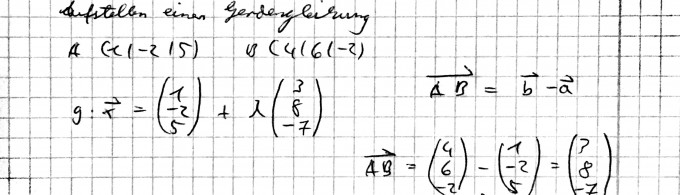 Aufstellen einer Geradengleichung
A (1|-2|5) B (4|6|-2)
g: \vec{x} = \begin{pmatrix} 1 \\ -2 \\ 5 \end{pmatrix} + λ \begin{pmatrix} 3 \\ 8 \\ -7 \end{pmatrix}
\overrightarrow{AB} = \vec{b} - \vec{a}
\overrightarrow{AB} = \begin{pmatrix} 4 \\ 6 \\ -2 \end{pmatrix} - \begin{pmatrix} 1 \\ -2 \\ 5 \end{pmatrix} = \begin{pmatrix} 3 \\ 8 \\ -7 \end{pmatrix}